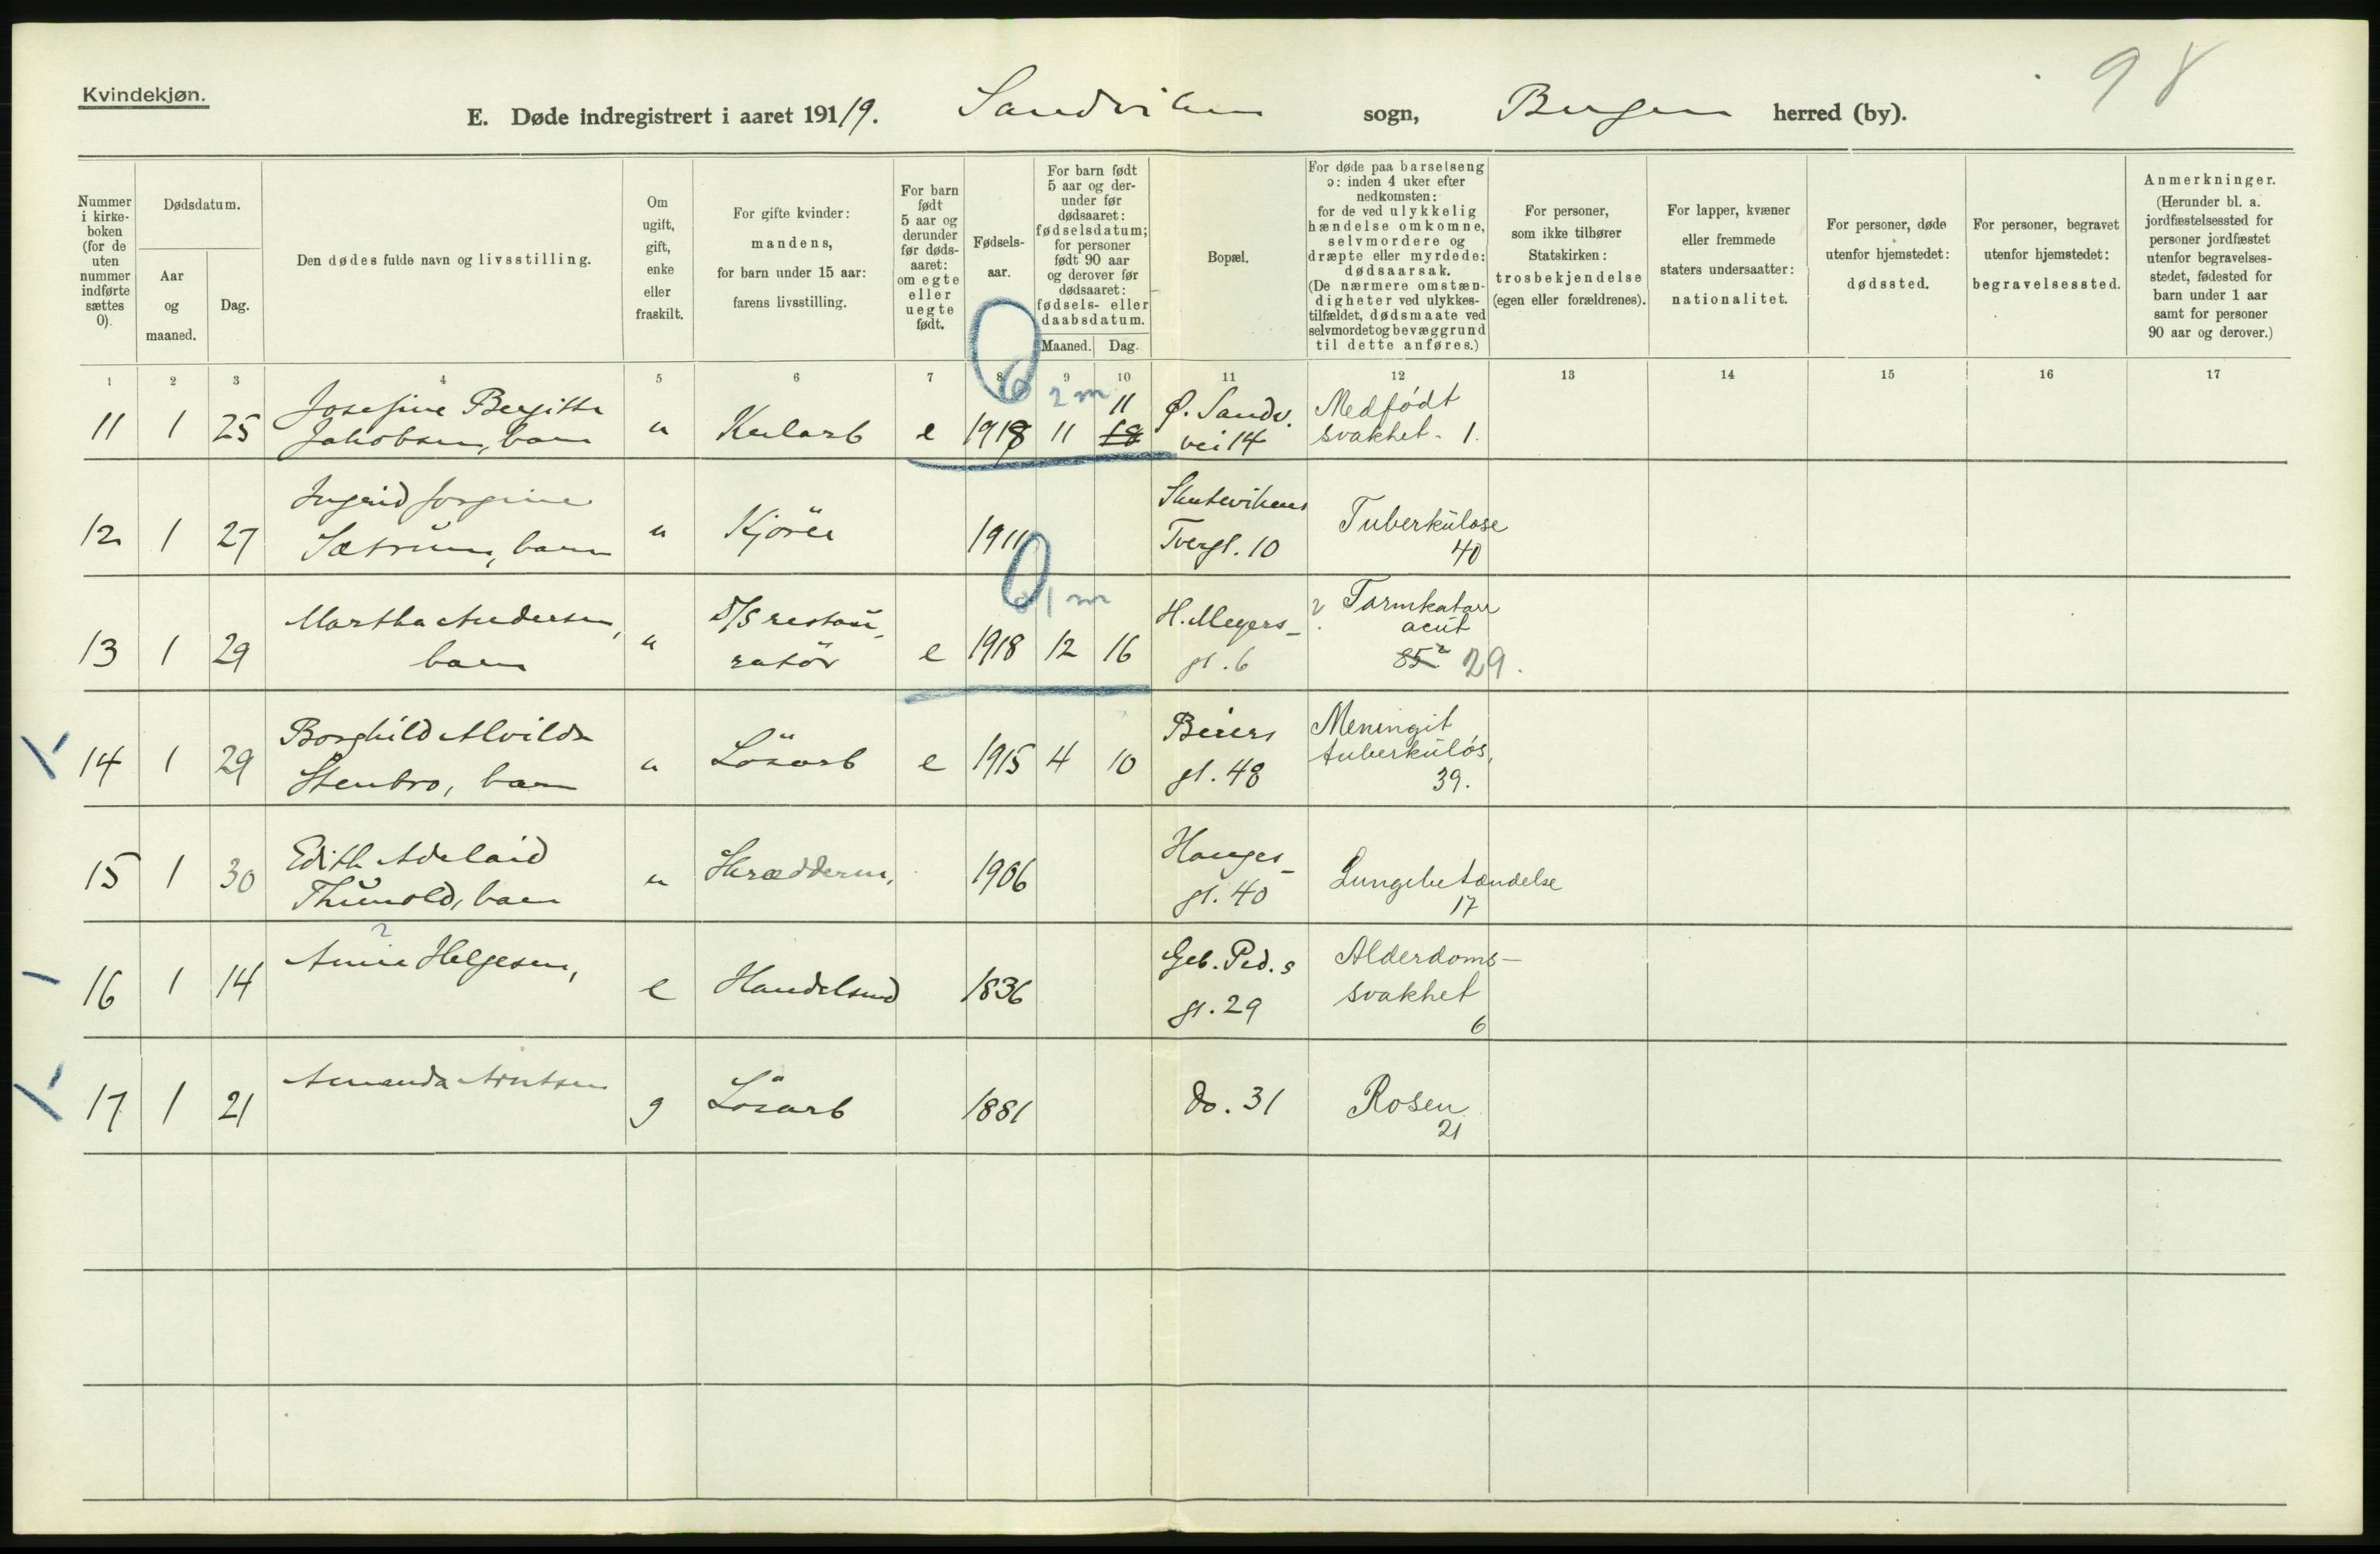 Kvindekjøn.
98
E. Døde indregistrert i aaret 1919. Sandviken sogn, Bergen herred (by).
Nummer i kirke-boken (for de uten nummer indførte sættes 0).
Dødsdatum.
Aar og maaned.
Dag.
Den dødes fulde navn og livsstilling.
Om ugift, gift, enke eller fraskilt.
For gifte kvinder: mandens, for barn under 15 aar: farens livsstilling.
For barn født 5 aar og derunder før døds-aaret: om egte eller uegte født.
Fødsels-aar.
For barn født 5 aar og der-under før dødsaaret: fødselsdatum; for personer født 90 aar og derover før dødsaaret: fødsels- eller daabsdatum.
Maaned. Dag.
Bopæl.
For døde paa barselseng ɔ: inden 4 uker efter nedkomsten: for de ved ulykkelig hændelse omkomne, selvmordere og dræpte eller myrdede: dødsaarsak. (De nærmere omstæn-digheter ved ulykkes-tilfældet, dødsmaate ved selvmordet og bevæggrund til dette anføres.)
For personer, som ikke tilhører Statskirken: trosbekjendelse (egen eller forældrenes).
For lapper, kvæner eller fremmede staters undersaatter: nationalitet.
For personer, døde utenfor hjemstedet: dødssted.
For personer, begravet utenfor hjemstedet: begravelsessted.
Anmerkninger. (Herunder bl. a. jordfæstelsessted for personer jordfæstet utenfor begravelses-stedet, fødested for barn under 1 aar samt for personer 90 aar og derover.)
1 2 3 4 5 6 7 8 9 10 11 12 13 14 15 16 17
0 2 m
11 1 25 Josefine Bergitte Jakobsen, barn u Kularb e 1918 11 18 11 Ø. Sandv. vei 14 Medfødt svakhet. 1.
12 1 27 Ingrid Jorgine Sætrum, barn u Kjörer 1911 Skutevikens Tvergt. 10 Tuberkulose 40
0 1 m
13 1 29 Martha Andersen, barn u D/S restau-ratör e 1918 12 16 H. Meyers-gt. 6 ? Tarmkatarr acut 85² 29.
14 1 29 Borghild Alvilda Stenbro, barn u Lösarb e 1915 4 10 Beiers gt. 48 Meningit tuberkuløs, 39.
15 1 30 Edith Adelaid Thunold, barn u Skrædderm. 1906 Hauges-gt. 40 Lungebetændelse 17
16 1 14 Anna Helgesen, e Handelsmd 1836 Geb. Ped. s gt. 29 Alderdoms-svakhet 6
17 1 21 Amanda Arntsen g Lösarb 1881 do. 31 Rosen 21